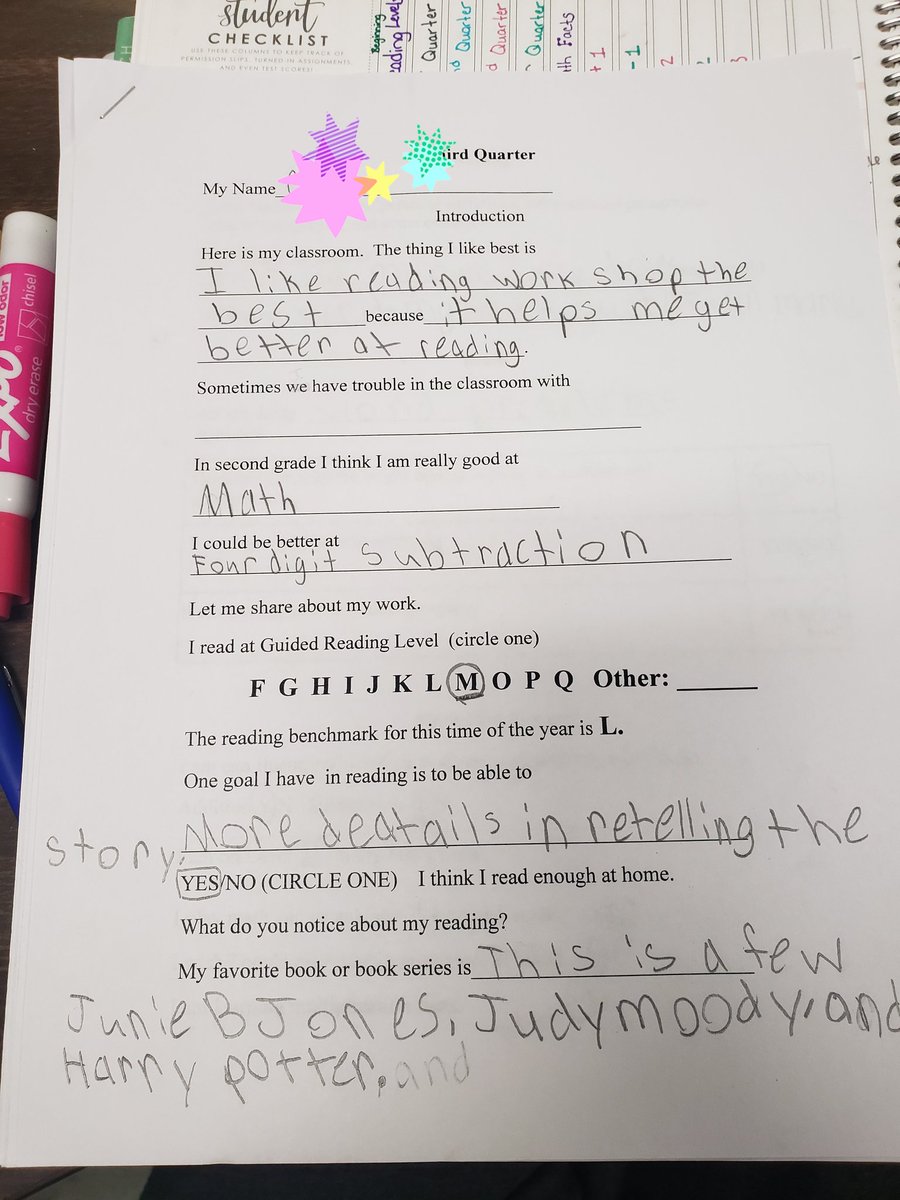 student
CHECKLIST
USE THESE COLUMNS TO KEEP TRACK OF
PERMISSION SLIPS, TURNED IN ASSIGNMENTS,
AND EVEN TEST SCORES!
Beginning
Quarter
Quarter
Quarter
Quarter
Facts
+ 1
- 1
2
2
3
low odor
chisel
EXPO®
dry erase
ird Quarter
My Name
Introduction
Here is my classroom. The thing I like best is
I like reading work shop the
best because it helps me get
better at reading.
Sometimes we have trouble in the classroom with
In second grade I think I am really good at
Math
I could be better at
Four digit subtraction
Let me share about my work.
I read at Guided Reading Level (circle one)
F G H I J K L M O P Q Other:
The reading benchmark for this time of the year is L.
One goal I have in reading is to be able to
More deatails in retelling the
story.
YES/NO (CIRCLE ONE) I think I read enough at home.
What do you notice about my reading?
My favorite book or book series is This is a few
Junie B Jones, Judy moody, and
Harry potter. and